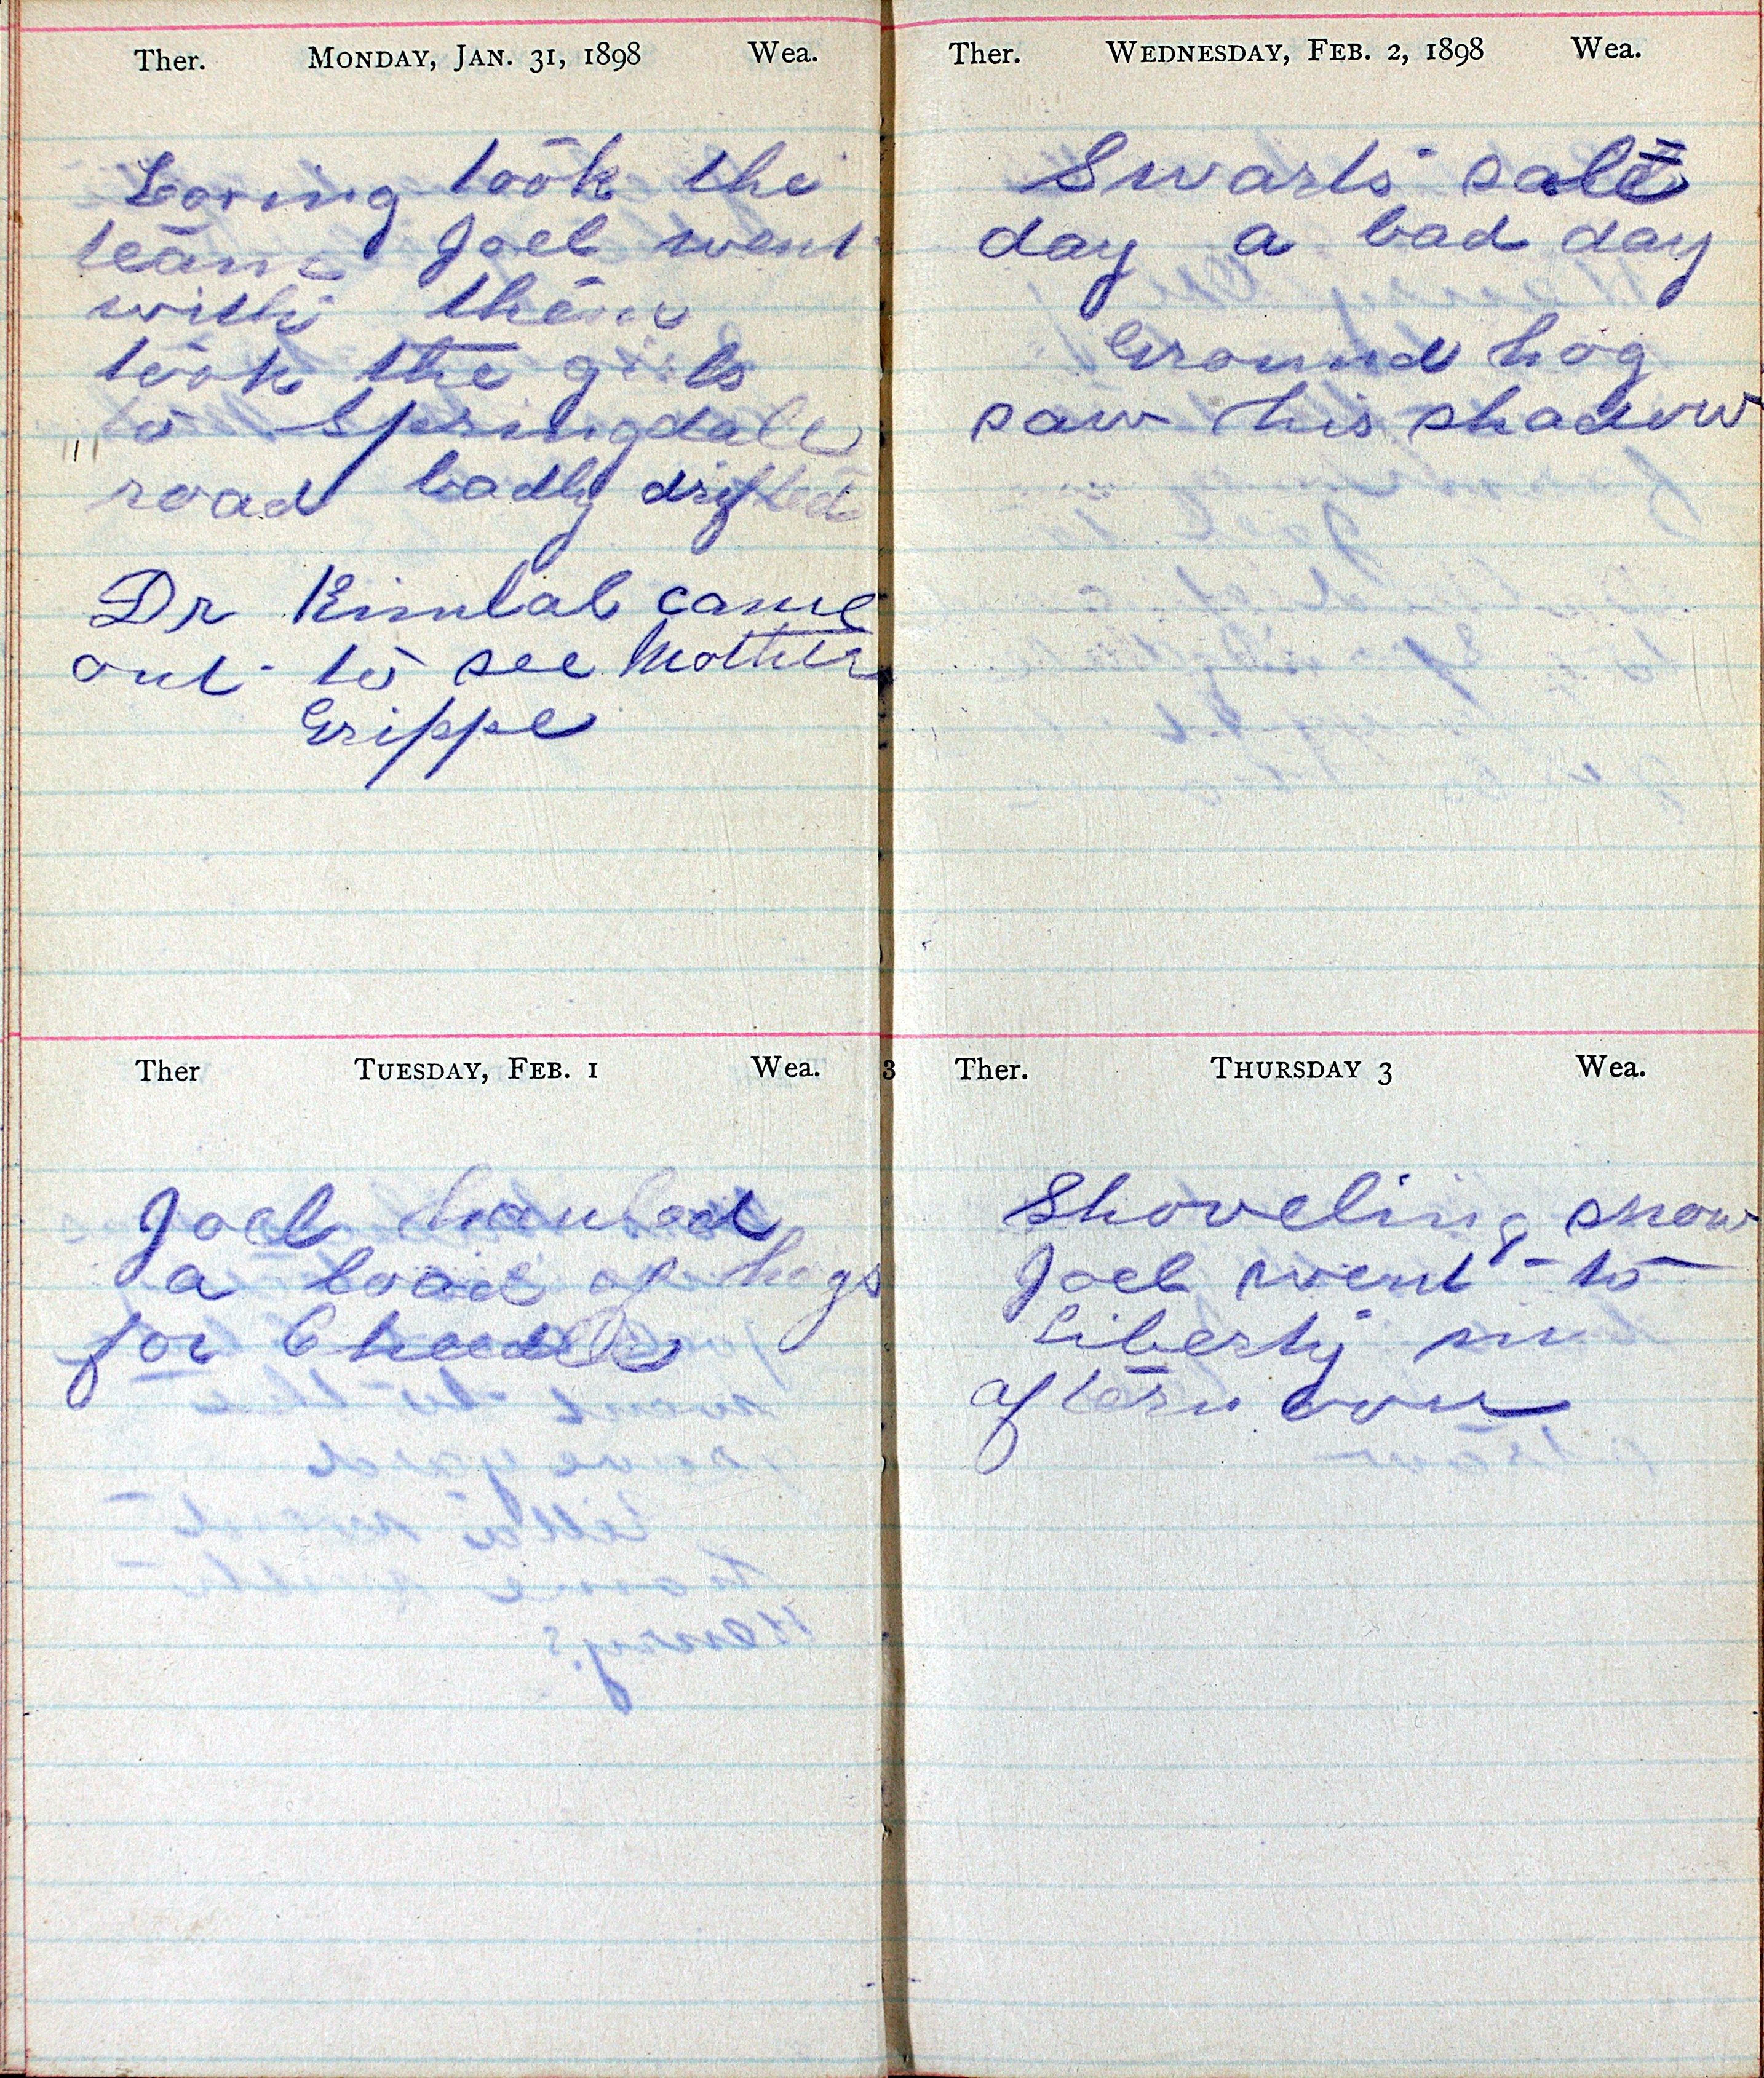 Ther. MONDAY, JAN. 31, 1898 Wea.
Loring took the
team Joel went
with them
took the girls
to Springdale
road badly drifted
Dr Kimbal came
out to see Mother
Grippe
Ther TUESDAY, FEB. 1 Wea.
Joel hauled
a load of hogs
for
3
Ther. WEDNESDAY, FEB. 2, 1898 Wea.
Swarts sale
day a bad day
Ground hog
saw his shadow
Ther. THURSDAY 3 Wea.
Shoveling snow
Joel went to
Liberty in
afternoon